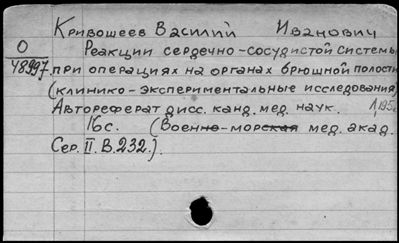 Кривошеев Василий Иванович
О Реакции сердечно-сосудистой системы
48997 при операциях на органах брюшной полости
(клинико-экспериментальные исследования)
Автореферат дисс. канд. мед. наук. Л, 195
16с. (Военно-морская мед. акад.
Сер. II. В.232.).